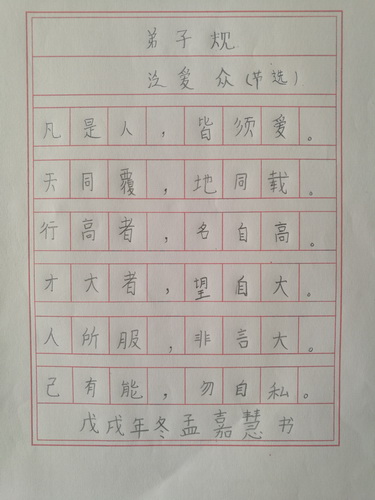 弟子规
泛爱众(节选)
凡是人，皆须爱。
天同覆，地同载。
行高者，名自高。
才大者，望自大。
人所服，非言大。
己有能，勿自私。
戊戌年冬孟嘉慧书